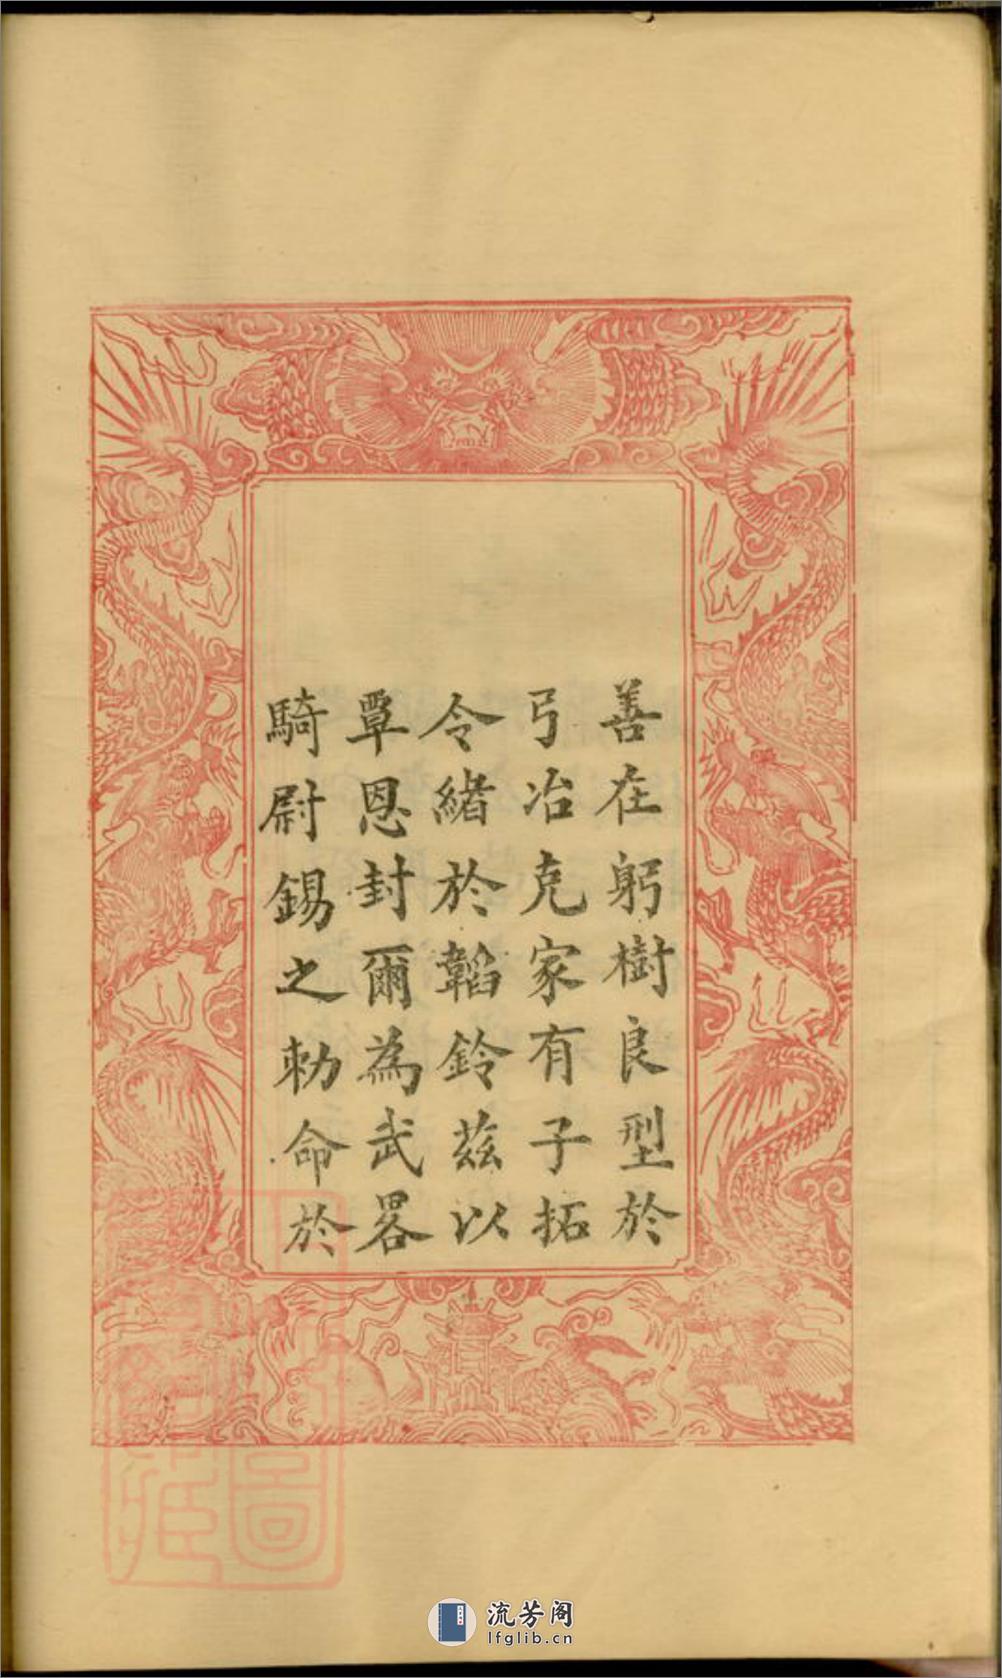 善在躬樹良型於
弓冶克家有子拓
令緒於韜鈴茲以
覃恩封爾為武畧
騎尉錫之勑命於
流芳阁
lfglib.cn